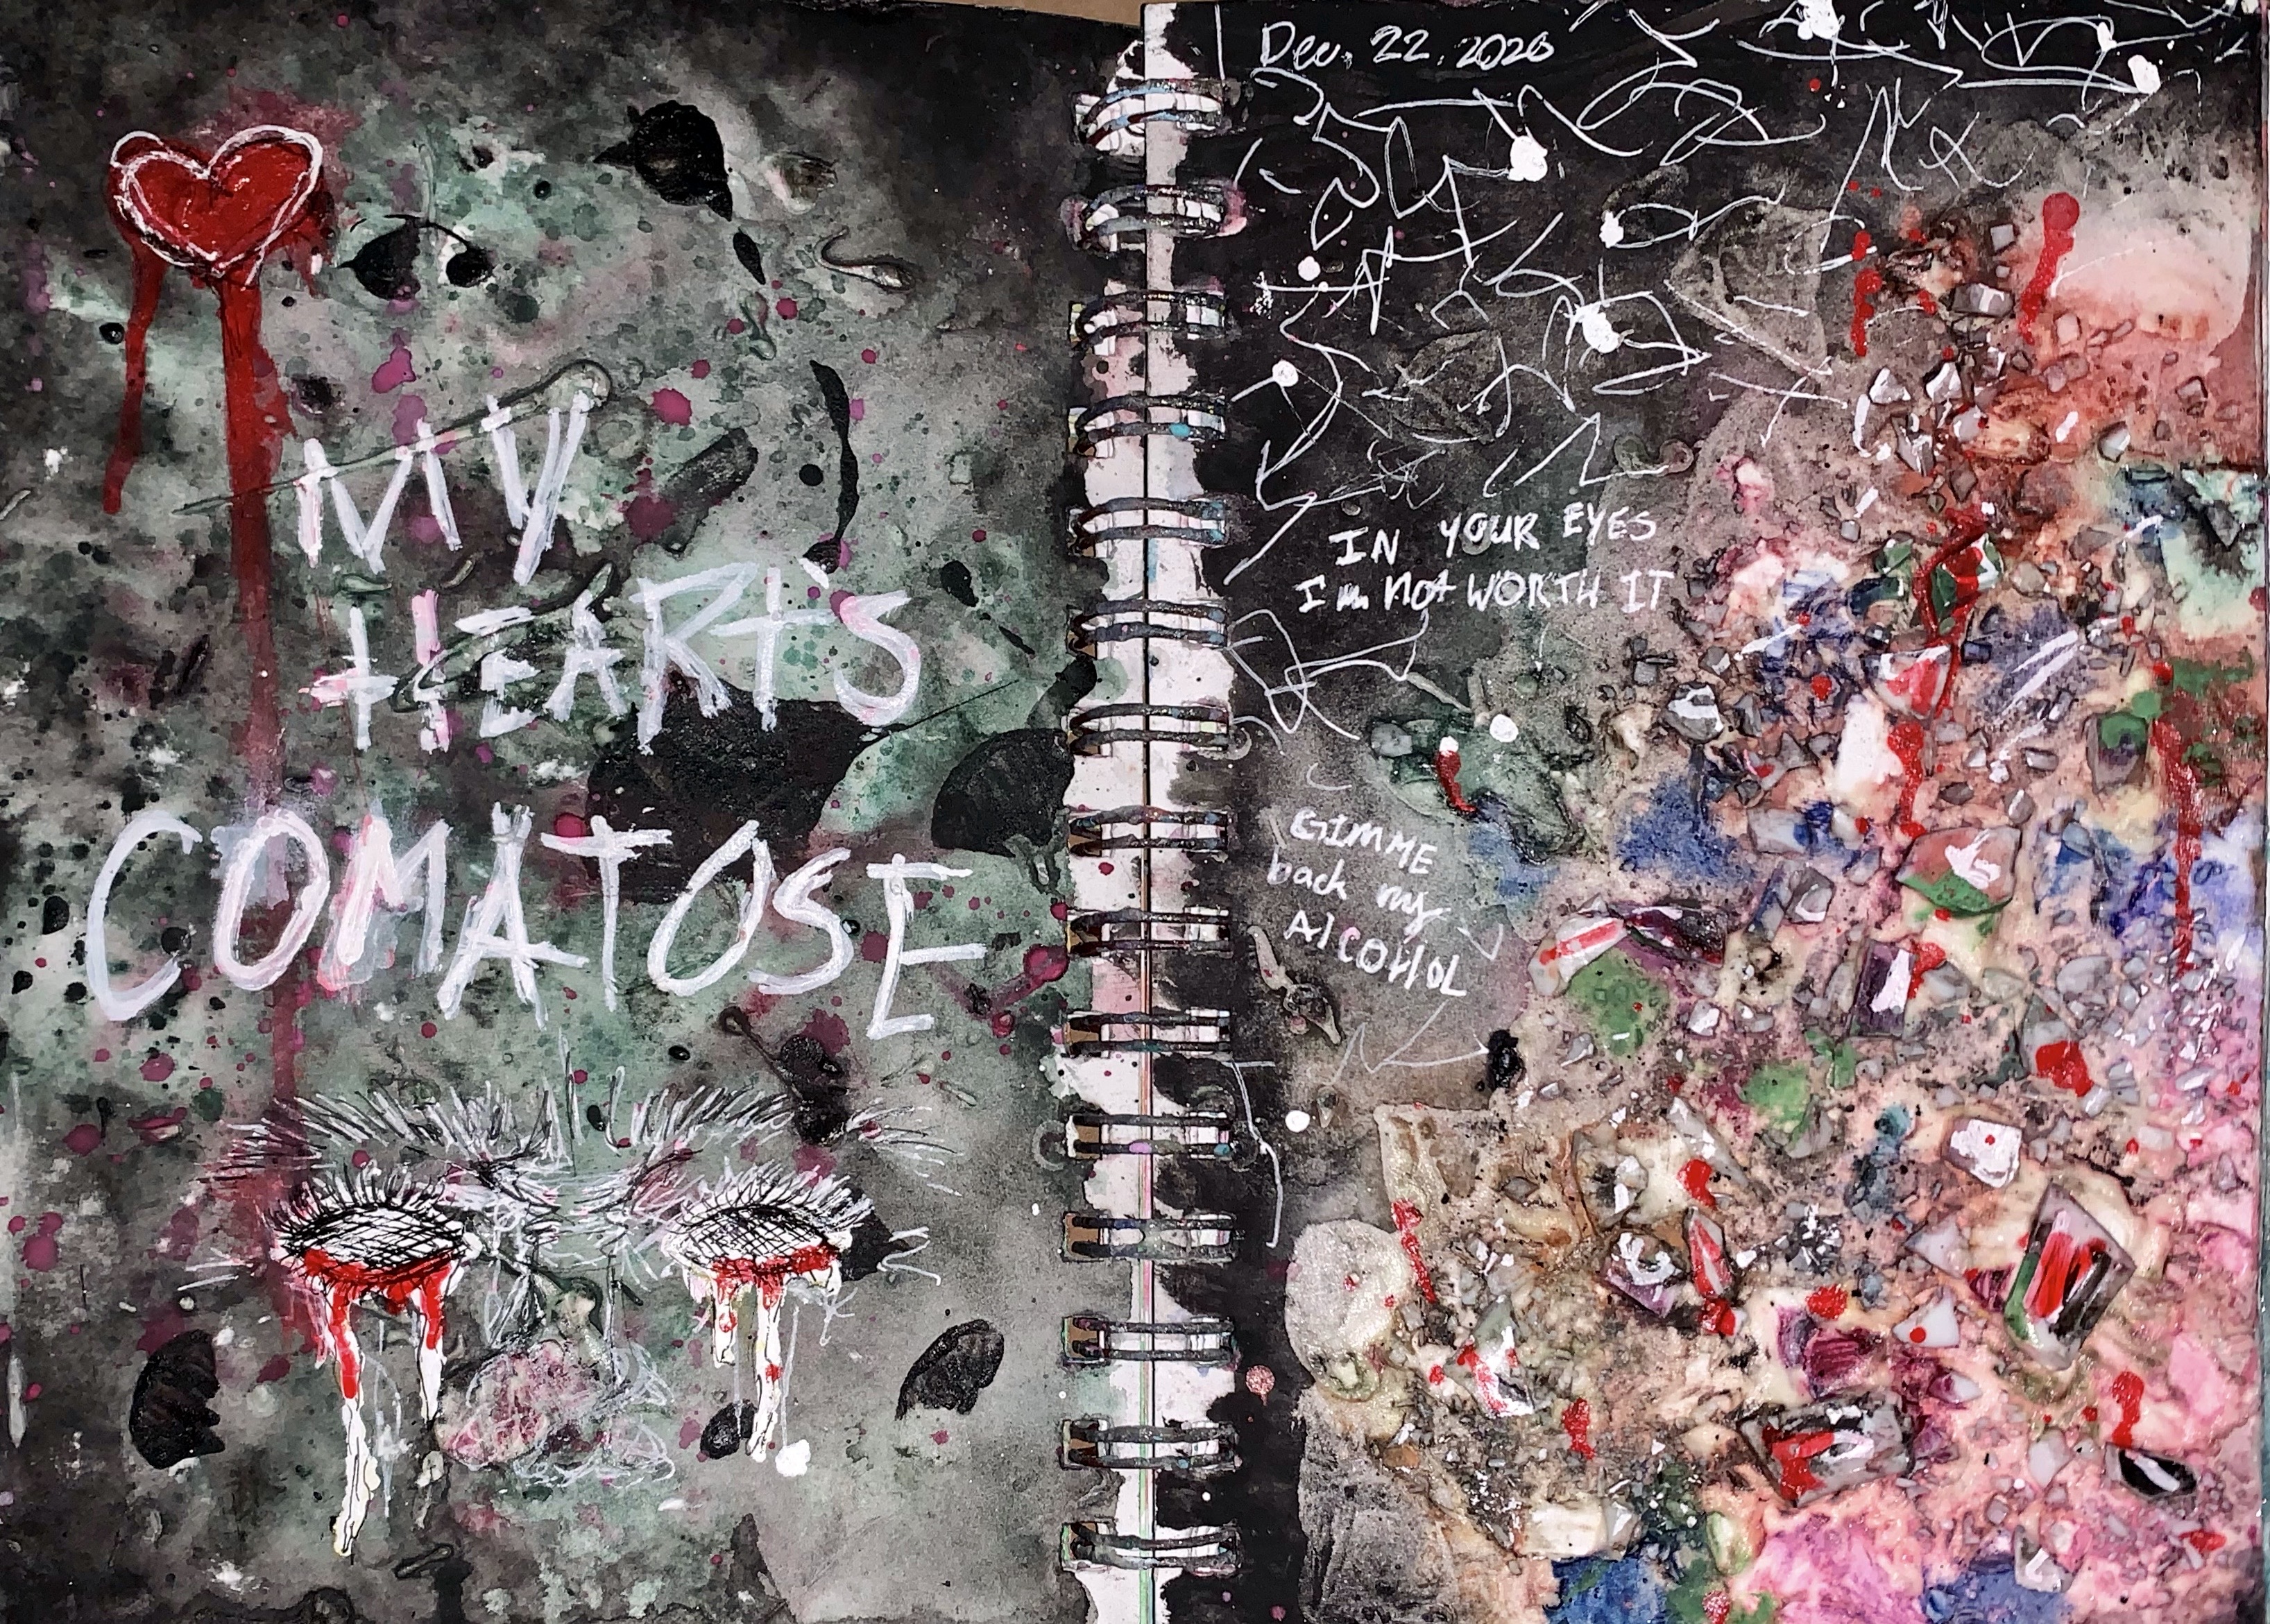 MY
HEART'S
COMATOSE
Dec. 22. 2020
IN YOUR EYES
I'm not WORTH IT
GIMME
back my
AlCOHOL